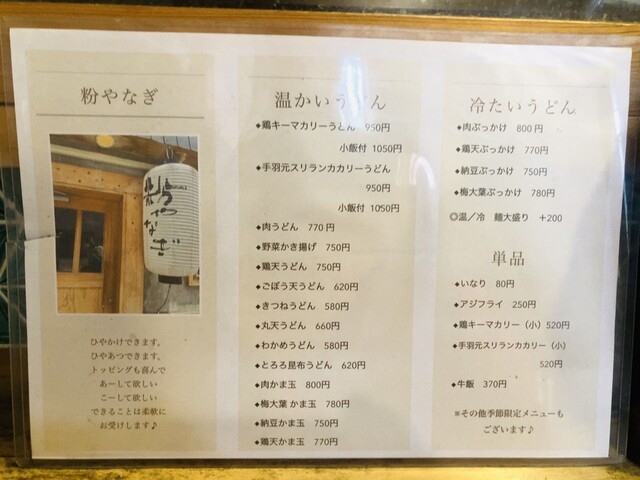 粉やなぎ
粉やなぎ
ひやかけできます。
ひやあつできます。
トッピングも喜んで
あーして欲しい
こーして欲しい
できることは柔軟に
お受けします♪
温かいうどん
◆鶏キーマカリーうどん 950円
小飯付 1050円
◆手羽元スリランカカリーうどん
950円
小飯付 1050円
◆肉うどん 770円
◆野菜かき揚げ 750円
◆鶏天うどん 750円
◆ごぼう天うどん 620円
◆きつねうどん 580円
◆丸天うどん 660円
◆わかめうどん 580円
◆とろろ昆布うどん 620円
◆肉かま玉 800円
◆梅大葉 かま玉 780円
◆納豆かま玉 750円
◆鶏天かま玉 770円
冷たいうどん
◆肉ぶっかけ 800円
◆鶏天ぶっかけ 770円
◆納豆ぶっかけ 750円
◆梅大葉ぶっかけ 780円
◎温／冷 麺大盛り +200
単品
◆いなり 80円
◆アジフライ 250円
◆鶏キーマカリー（小）520円
◆手羽元スリランカカリー（小）
520円
◆牛飯 370円
※その他季節限定メニューも
ございます♪